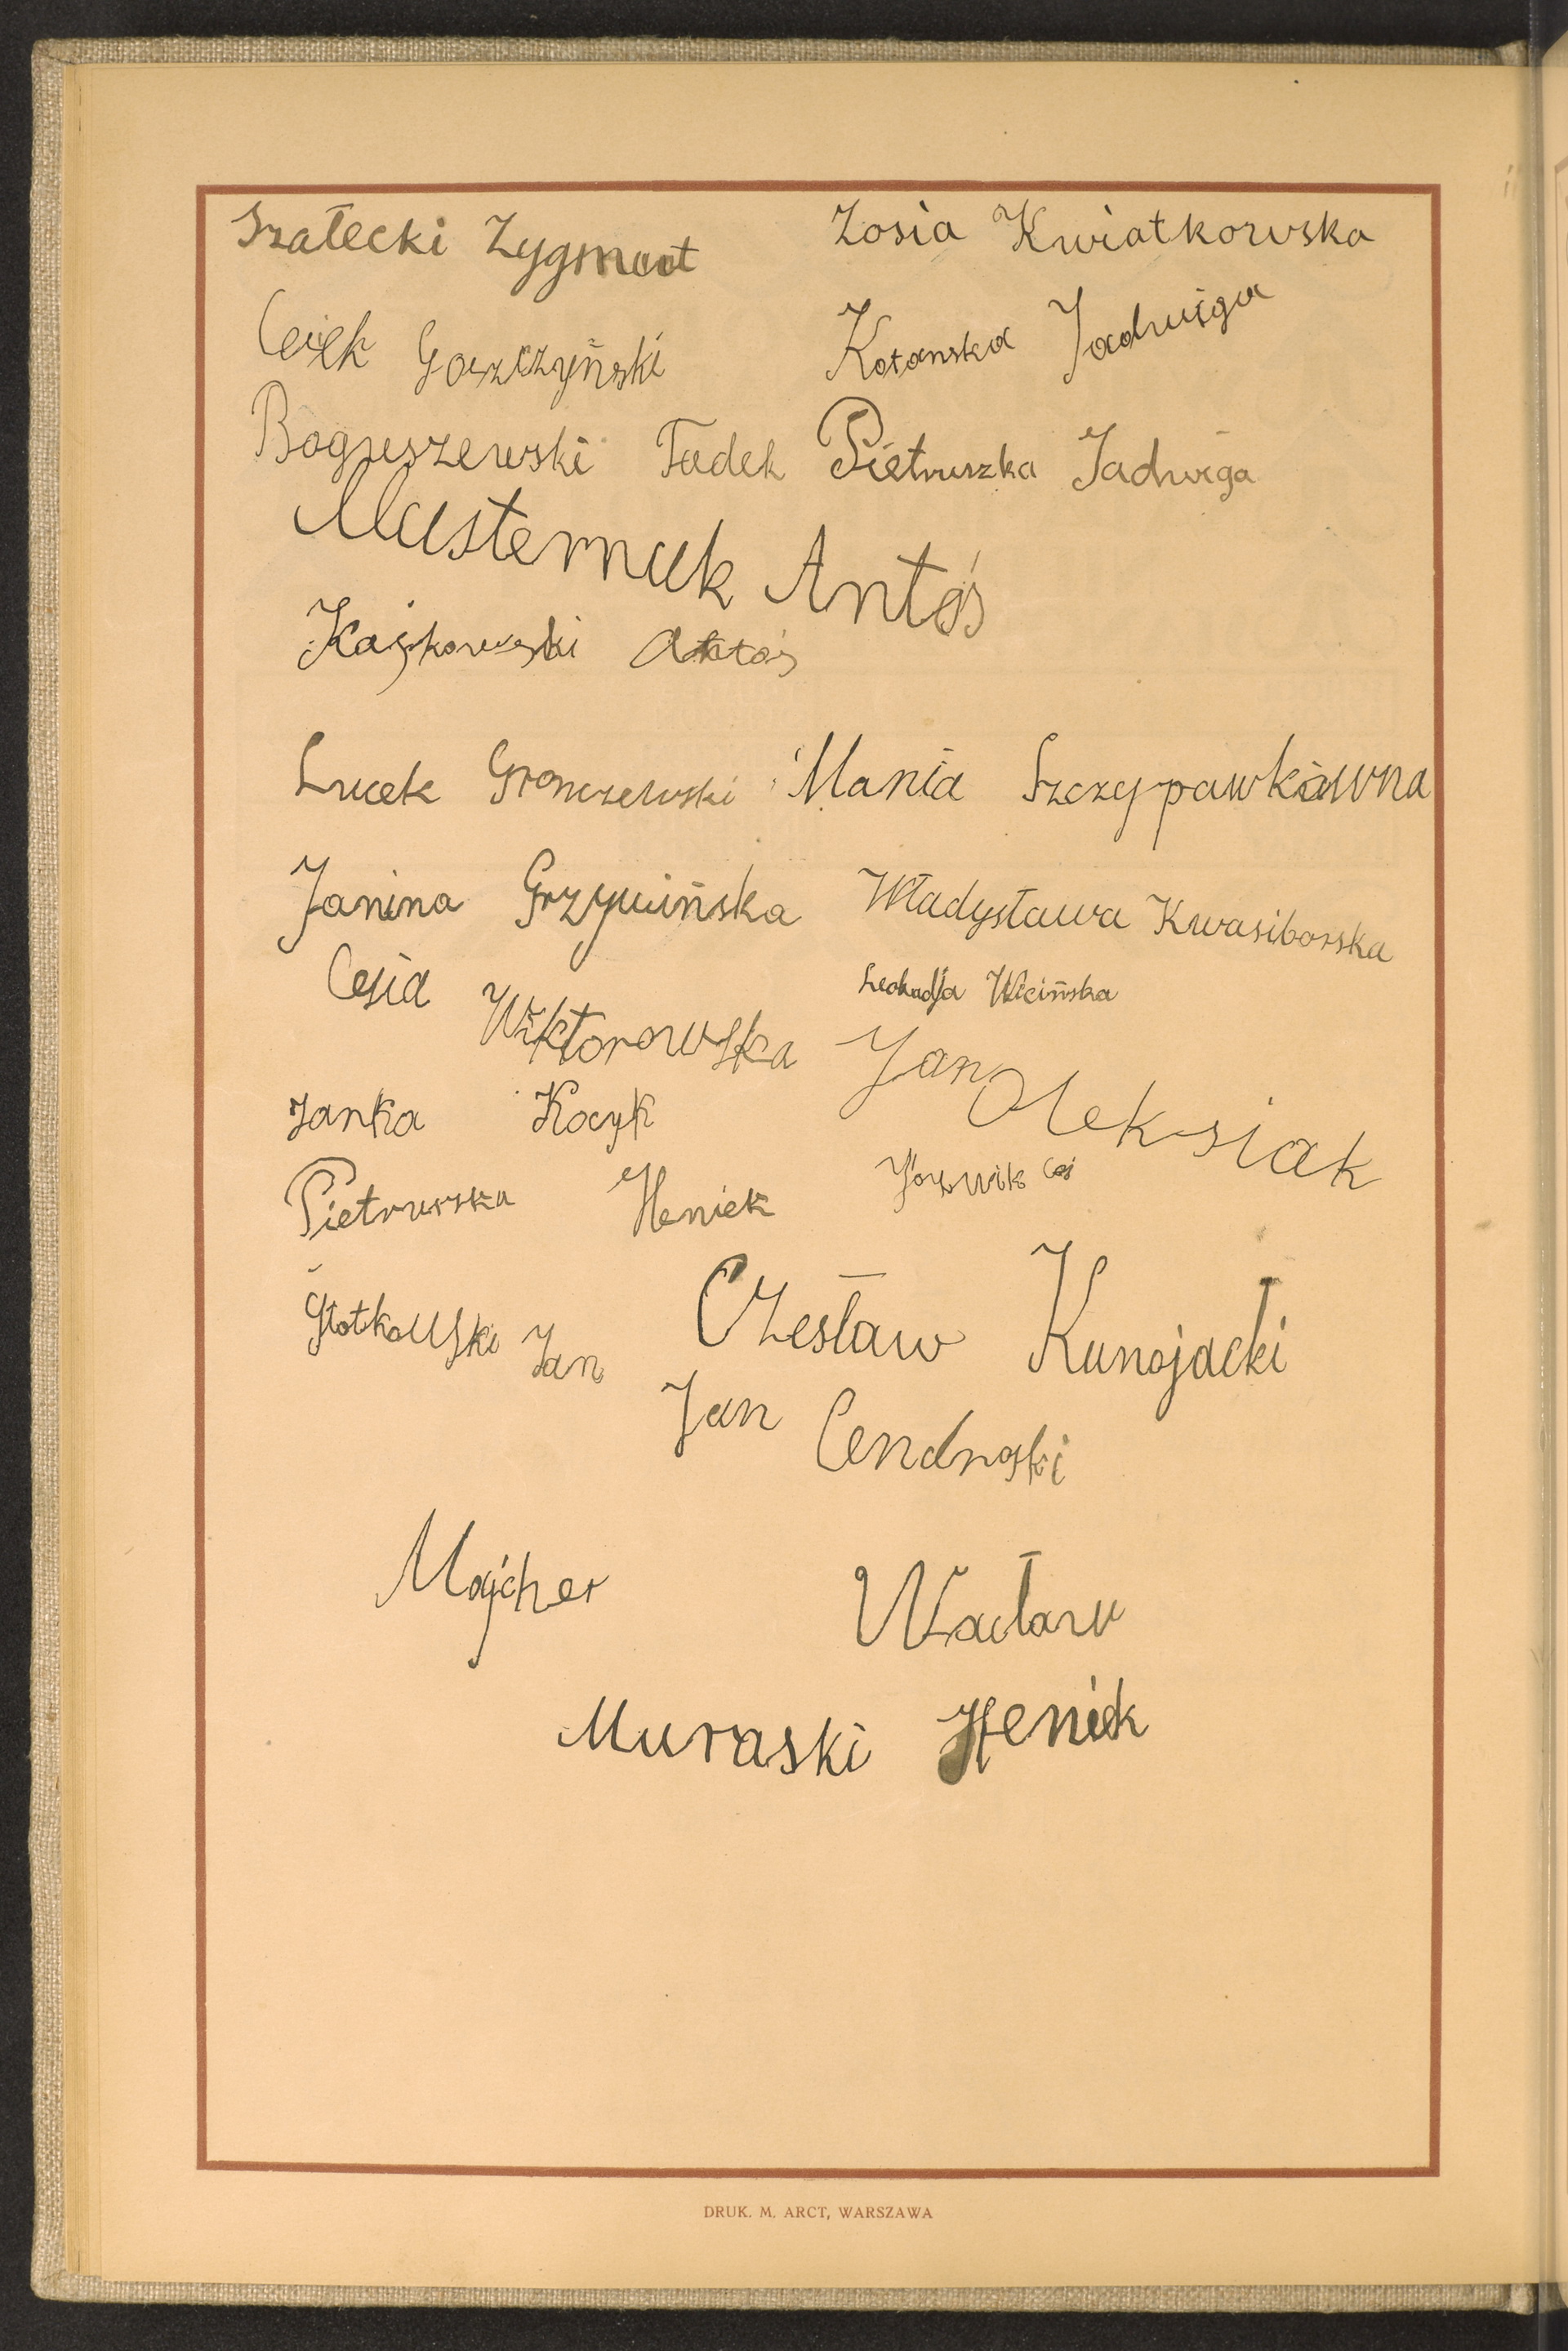 Szałecki Zygmunt
Zosia Kwiatkowska
Goszczyński
Kotanska Jadwiga
Boguszewski Tadek
Pietruszka Jadwiga
Masternak Antoś
Antoś
Lucek Gronczewski
Mania Szczypawkówna
Janina Grzywińska
Władysława Kwasiborska
Cesia Wiktorowska
Leokadja Wicińska
Jan Oleksiak
Janka Kocyk
Pietruszka Heniek
Jan
Czesław Kunojacki
Jan Cendroski
Majcher Wacław
Muraski Heniek
DRUK. M. ARCT, WARSZAWA